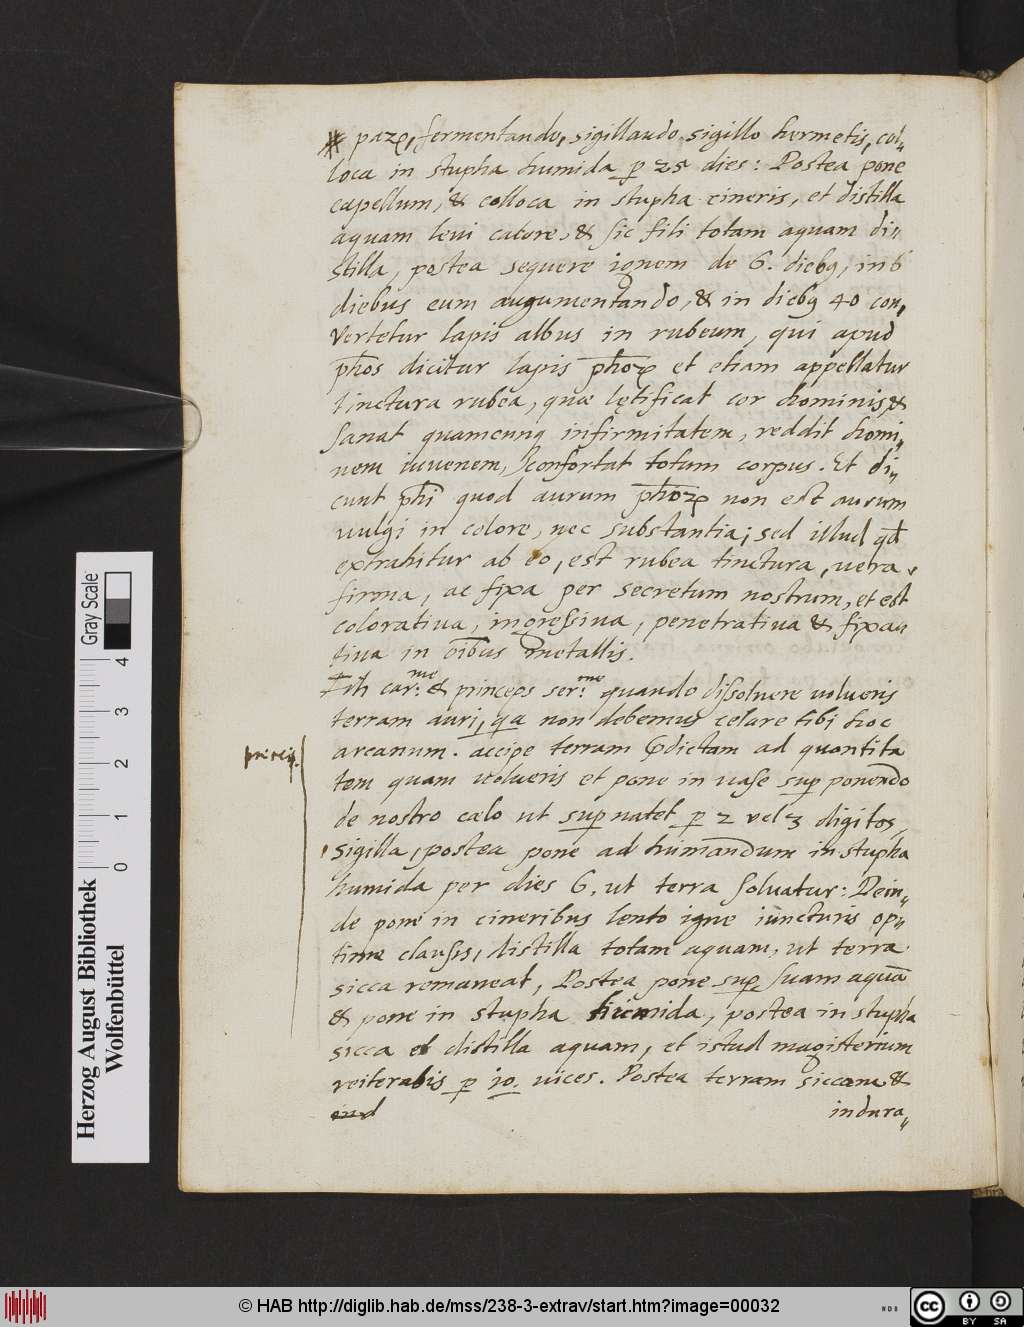 fermentando, sigillando sigillo hermetis, col„
loca in stupha humida p 25 dies: Postea pone
capellum, & colloca in stupha cineris, et distilla
aquam leui calore, & sic fili totam aquam di„
stilla, postea sequere ignem de 6. dieb9, in 6
diebus eum augumentando, & in dieb9 40 con„
vertetur lapis albus in rubeum, qui apud
phos dicitur lapis et etiam appellatur
tinctura rubea, quæ lętificat cor hominis, &
sanat quamcunq infirmitatem, reddit homi„
nem iuuenem, confortat totum corpus. Et di„
cunt phi quod aurum non est aurum
uulgi in colore, nec substantia; sed illud qd
extrahitur ab eo, est rubea tinctura, uera,
firma, ac fixa per secretum nostrum, et est
coloratiua, ingressiua, penetratiua & fixa„
tiua in oibus metallis.
Fili car:me & princeps ser:me quando dissoluere uolueris
terram auri, qa non debemus celare tibi hoc
arcanum. accipe terram dictam ad quantita
tem quam uolueris et pone in uase sup ponendo
de nostro cælo ut sup natet p 2 vel 3 digitos,
sigilla, postea pone ad humandum in stupha
humida per dies 6, ut terra soluatur: Dein„
de pone in cineribus lento igne iuncturis op„
time clausis, distilla totam aquam, ut terra
sicca remaneat, Postea pone sup suam aquā
& pone in stupha humida, postea in stupha
sicca et distilla aquam, et istud magisterium
reiterabis p 10. uices. Postea terram siccam &
indura„
Herzog August Bibliothek
Wolfenbüttel
0 1 2 3 4
Gray Scale
© HAB http://diglib.hab.de/mss/238-3-extrav/start.htm?image=00032
NDB
cc BY SA